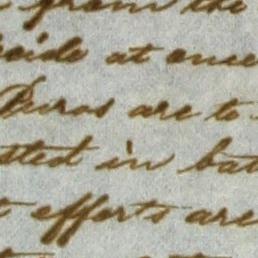 from the
cide at once
Duros are to
sted in bat
t efforts are